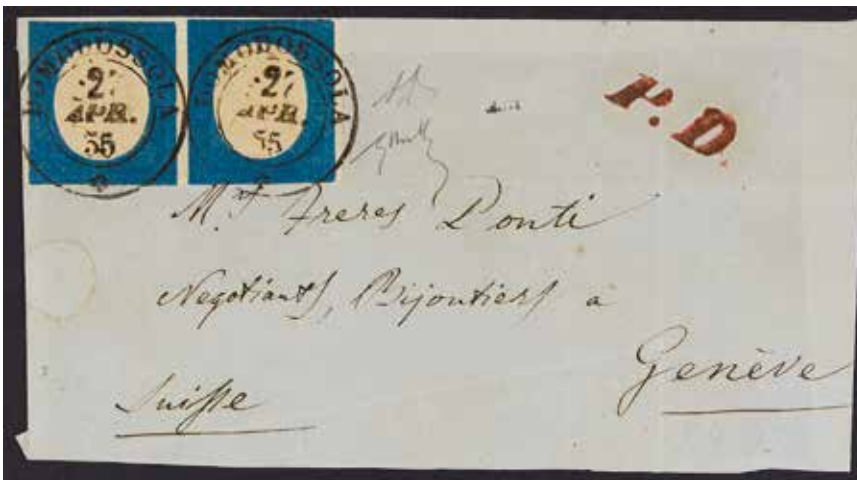 DOMODOSSOLA
27
APR.
55
DOMODOSSOLA
27
APR.
55
P.D.
Mrs Freres Ponti
Negotiants, Bijoutiers à
Genève
Suisse